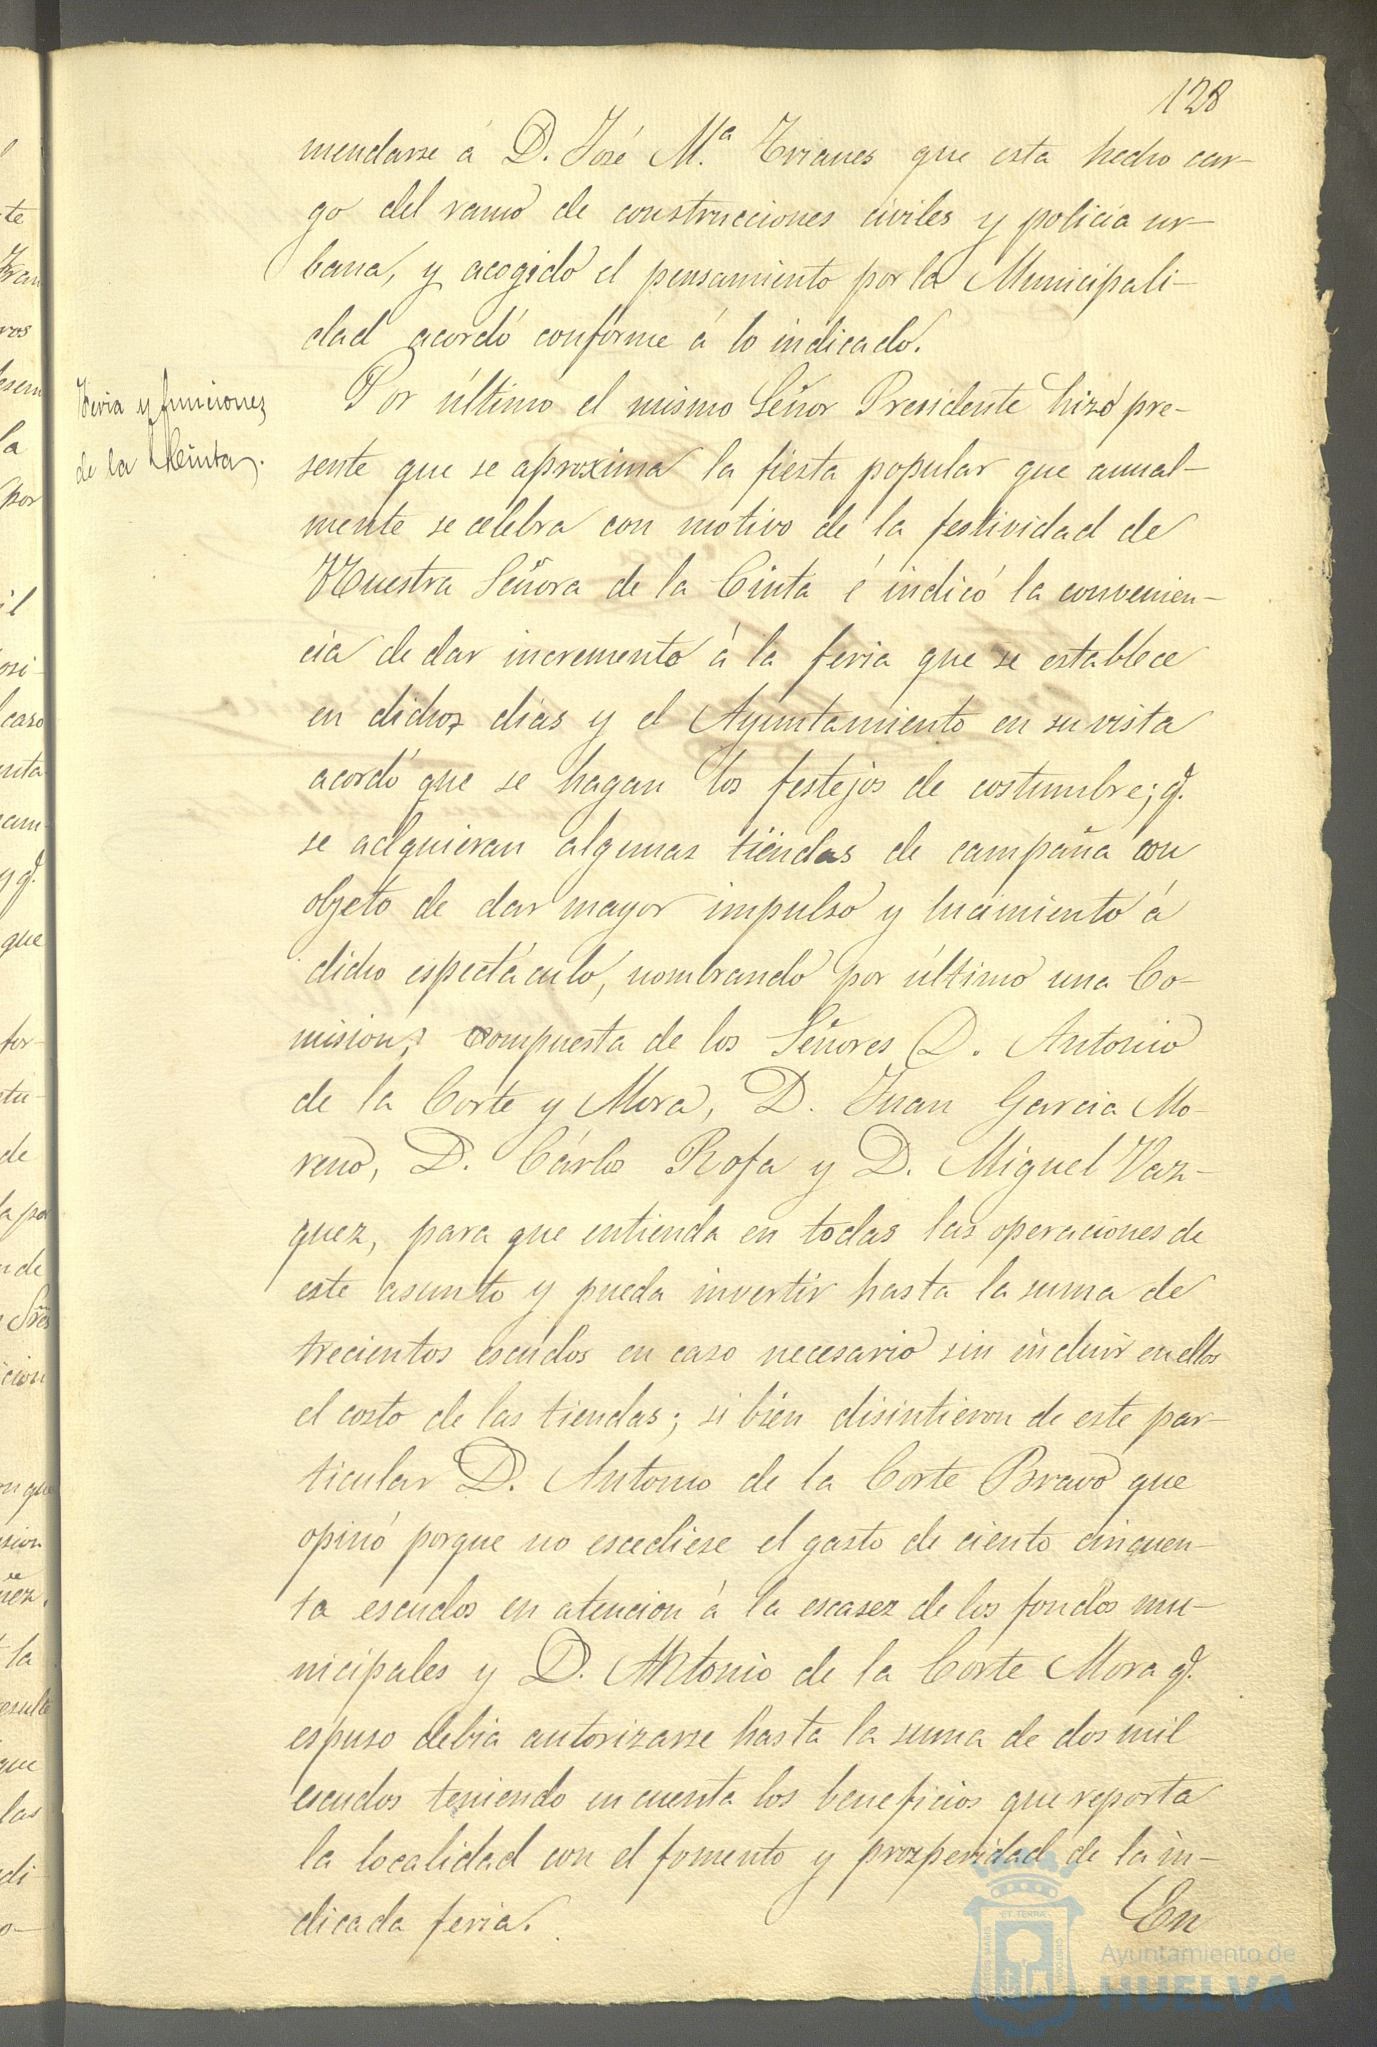 128
mendarse á D. José M.ª Trianes que esta hecho car-
go del ramo de construcciones civiles y policia ur-
bana, y acogido el pensamiento por la Municipali-
dad acordó conforme á lo indicado.
Feria y funciones
de la Cinta.
Por último el mismo Señor Presidente hizo pre-
sente que se aproxima la fiesta popular que anual-
mente se celebra con motivo de la festividad de
Nuestra Señora de la Cinta é indicó la convenien-
cia de dar incremento á la feria que se establece
en dichos dias y el Ayuntamiento en su vista
acordó que se hagan los festejos de costumbre; q.
se adquieran algunas tiendas de campaña con
objeto de dar mayor impulso y lucimiento á
dicho espectáculo, nombrando por último una Co-
mision, compuesta de los Señores D. Antonio
de la Corte y Mora, D. Juan Garcia Mo-
reno, D. Cárlos Rofa y D. Miguel Vaz-
quez, para que entienda en todas las operaciones de
este asunto y pueda invertir hasta la suma de
trecientos escudos en caso necesario sin incluir en ellos
el costo de las tiendas; si bien disintieron de este par-
ticular D. Antonio de la Corte Bravo que
opinó porque no escediese el gasto de ciento cincuen-
ta escudos en atencion á la escasez de los fondos mu-
nicipales y D. Antonio de la Corte Mora q.
espuso debia autorizarse hasta la suma de dos mil
escudos teniendo en cuenta los beneficios que reporta
la localidad con el fomento y prosperidad de la in-
dicada feria.
En
Ayuntamiento de
HUELVA